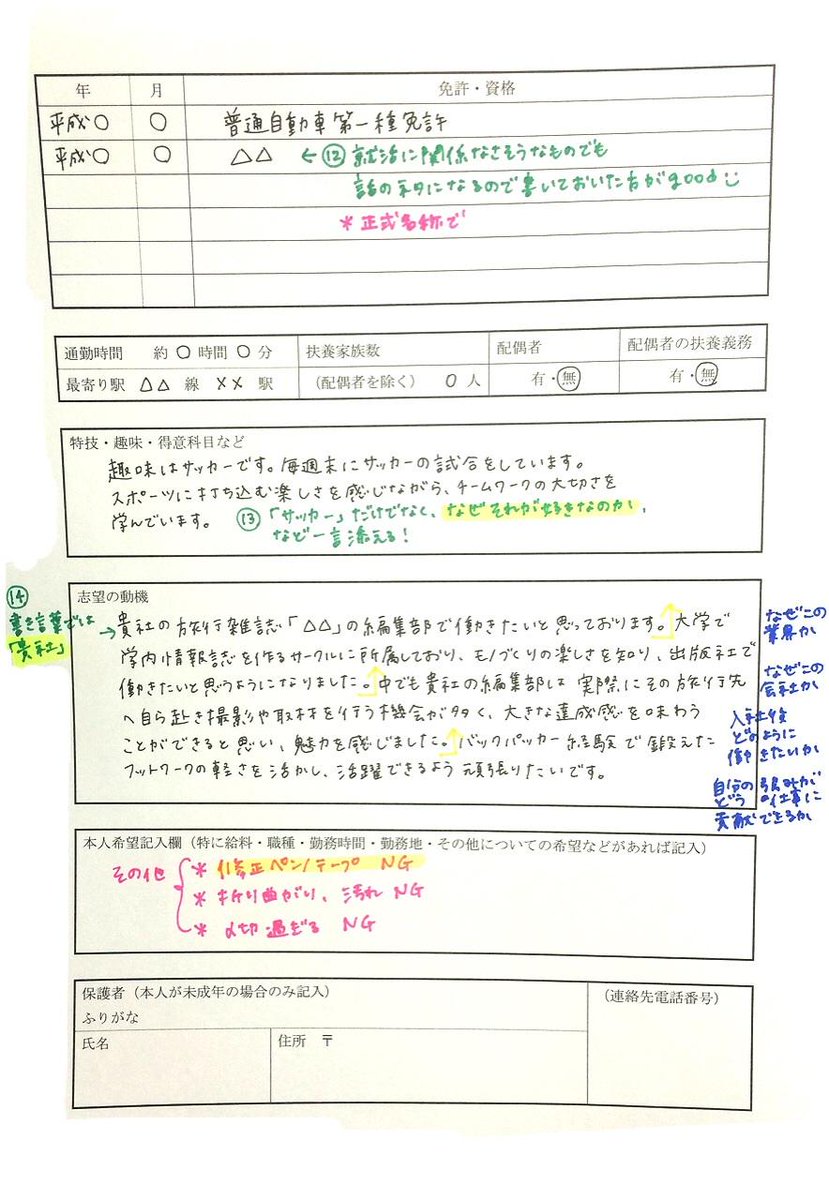 年 月 免許・資格
平成○ ○ 普通自動車第一種免許
平成○ ○ △△ ← ⑫ 就活に関係なさそうなものでも
話のネタになるので書いておいた方がgood
*正式名称で
通勤時間 約 ○ 時間 ○ 分
最寄り駅 △△ 線 ×× 駅
扶養家族数
(配偶者を除く) 0 人
配偶者
有・無
配偶者の扶養義務
有・無
特技・趣味・得意科目など
趣味はサッカーです。毎週末にサッカーの試合をしています。
スポーツに打ち込む楽しさを感じながら、チームワークの大切さを
学んでいます。 ⑬「サッカー」だけでなく、なぜそれが好きなのか、
など一言添える!
⑭
書き言葉では
「貴社」
志望の動機
→貴社の旅行雑誌「△△」の編集部で働きたいと思っております。大学で
学内情報誌を作るサークルに所属しており、モノづくりの楽しさを知り、出版社で
働きたいと思うようになりました。中でも貴社の編集部は実際にその旅行先
へ自ら赴き撮影や取材を行う機会が多く、大きな達成感を味わう
ことができると思い、魅力を感じました。バックパッカー経験で鍛えた
フットワークの軽さを活かし、活躍できるよう頑張りたいです。
なぜこの
業界か
なぜこの
会社か
入社後
どのように
働きたいか
自分の強みが
どう の仕事に
貢献できるか
本人希望記入欄(特に給料・職種・勤務時間・勤務地・その他についての希望などがあれば記入)
その他 * 修正ペン/テープ NG
* 折り曲がり、汚れ NG
* 〆切過ぎる NG
保護者(本人が未成年の場合のみ記入)
ふりがな
氏名
住所 〒
(連絡先電話番号)